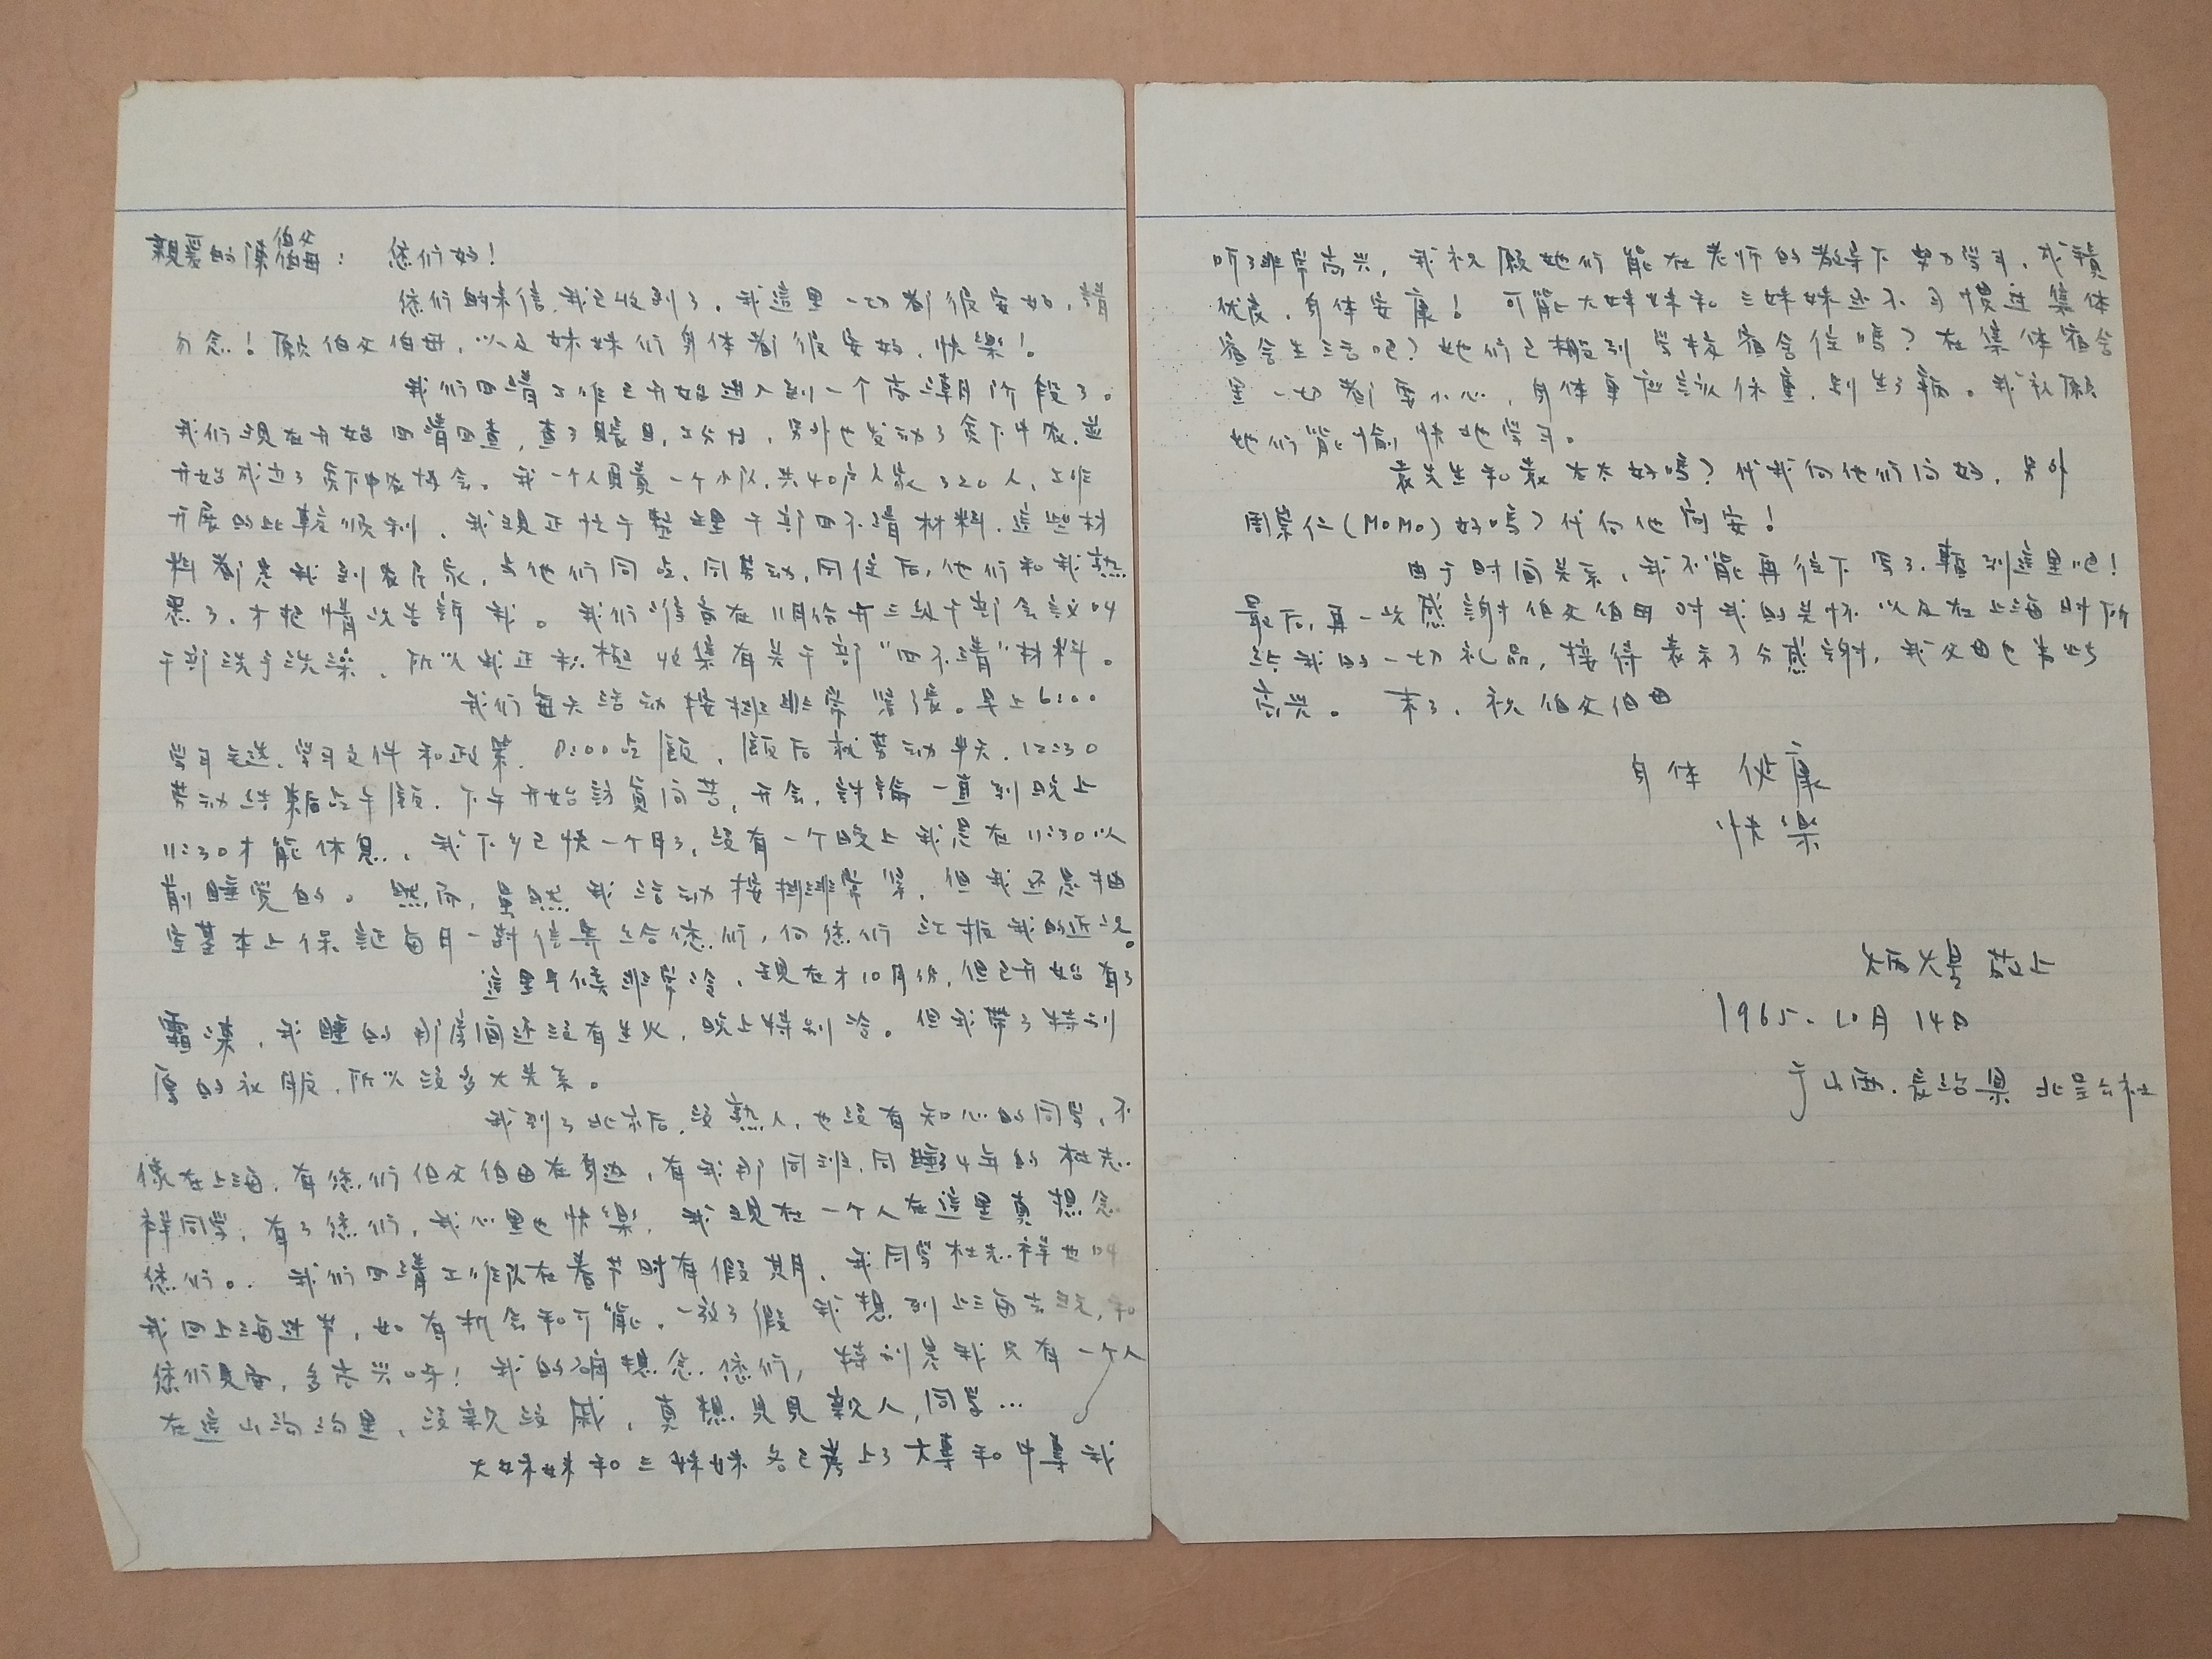 親爱的陳伯父伯母： 您们好！
您们的来信，我已收到了，我這里一切都很安好，請
勿念！願伯父伯母，以及妹妹们身体都很安好，快樂！
我们四清工作已开始进入到一个高潮阶段了。
我们現在开始四清四查，查了賬目，工分……，另外也发动了贫下中农，並
开始成立了贫下中农协会。我一个人負責一个小队，共40户人家320人，工作
开展的比較順利，我現正忙于整理干部四不清材料，這些材
料都是我到农民家，与他们同吃，同劳动，同住后，他们和我熟
悉了，才把情况告訴我。我们准备在11月份开三级干部会议叫
干部洗手洗澡，所以我正积極收集有关干部“四不清”材料。
我们每天活动按排非常紧张。早上6:00
学习毛选、学习文件和政策，8:00吃飯，飯后就劳动半天，12:30
劳动结束后吃午飯，下午开始訪貧问苦，开会，討論一直到晚上
11:30才能休息，我下乡已快一个月了，没有一个晚上我是在11:30以
前睡觉的。然而，虽然我活动按排非常紧，但我还是抽
空基本上保証每月一封信寄给您们，向您们汇报我的近况。
這里气候非常冷，現在才10月份，但已开始有了
霜凍，我睡的那房间还没有生火，晚上特别冷。但我帶了特别
厚的衣服，所以没多大关系。
我到了北京后，没熟人，也没有知心的同学，不
像在上海，有您们伯父伯母在身边，有我那同班，同睡了4年的杜志
祥同学，有了您们，我心里也快樂，我現在一个人在這里真想念
您们。我们四清工作队在春节时有假期，我同学杜志祥也叫
我回上海过节，如有机会和可能，一放了假我想到上海去玩，和
您们見面，多高兴呀！我的确想念您们，特别是我只有一个人
在這山沟沟里，没親没戚，真想見見親人，同学…
大妹妹和三妹妹各已考上了大專和中專我
听了非常高兴，我祝願她们能在老师的教导下努力学习，成績
优良，身体安康！可能大妹妹和三妹妹还不习慣过集体
宿舍生活吧？她们已搬到学校宿舍住嗎？在集体宿舍
里一切都要小心，身体更应該保重，别生了病。我祝願
她们能愉快地学习。
袁先生和袁太太好嗎？代我向他们问好，另外
周崇仁(MoMo)好嗎？代向他问安！
由于时间关系，我不能再往下写了，暫到這里吧！
最后，再一次感謝伯父伯母对我的关怀以及在上海时所
给我的一切礼品，接待表示万分感謝，我父母也为此
高兴。 末了，祝伯父伯母
身体 健康
快樂
炳煋 敬上
1965.10月14日
于山西.長治县 北呈公社